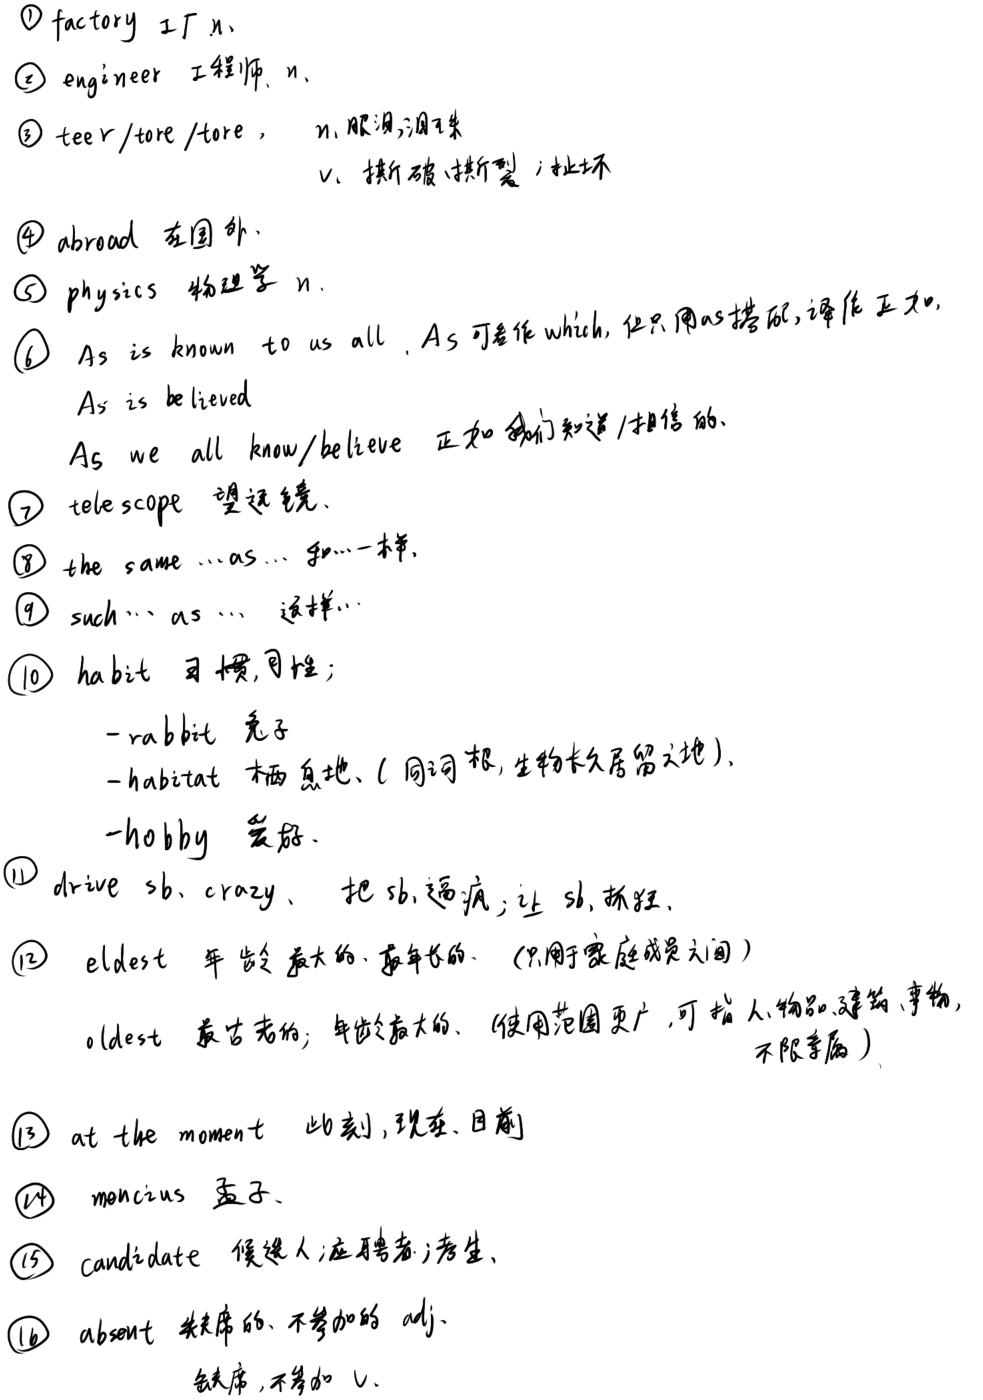 ① factory 工厂 n、
② engineer 工程师、n、
③ teer/tore/tore, n、眼泪,泪珠
v、撕破、撕裂;扯坏
④ abroad 在国外、
⑤ physics 物理学 n、
⑥ As is known to us all、As 可看作which,但只用as搭配,译作正如,
As is believed
As we all know/believe 正如我们知道/相信的、
⑦ telescope 望远镜、
⑧ the same …as… 和…一样、
⑨ such… as … 这样…
⑩ habit 习惯,习性;
-rabbit 兔子
-habitat 栖息地、(同词根,生物长久居留之地)、
-hobby 爱好、
⑪ drive sb、crazy、 把sb,逼疯;让 sb,抓狂、
⑫ eldest 年龄最大的、最年长的、(只用于家庭成员之间)
oldest 最古老的;年龄最大的、(使用范围更广,可指人、物品、建筑、事物,
不限亲属)、
⑬ at the moment 此刻,现在、目前
⑭ mencius 孟子、
⑮ candidate 候选人;应聘者;考生、
⑯ absent 缺席的、不参加的 adj、
缺席,不参加 v、